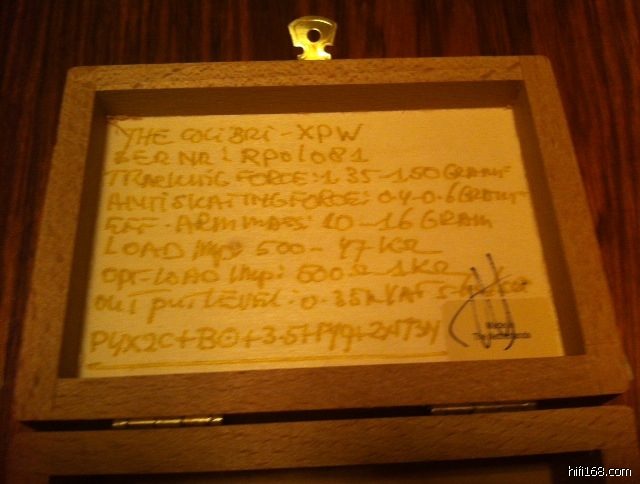 THE COLIBRI - XPW
SER NR: RP01081
TRACKING FORCE: 1.35-1.50 GRAM
ANTISKATING FORCE: 0.4-0.6 GRAM
EFF. ARM MASS: 10-16 GRAM
LOAD Imp: 500 - 47 KΩ
OPT-LOAD Imp: 600 Ω - 1KΩ
OUTPUT LEVEL: 0.35
hifi168.com